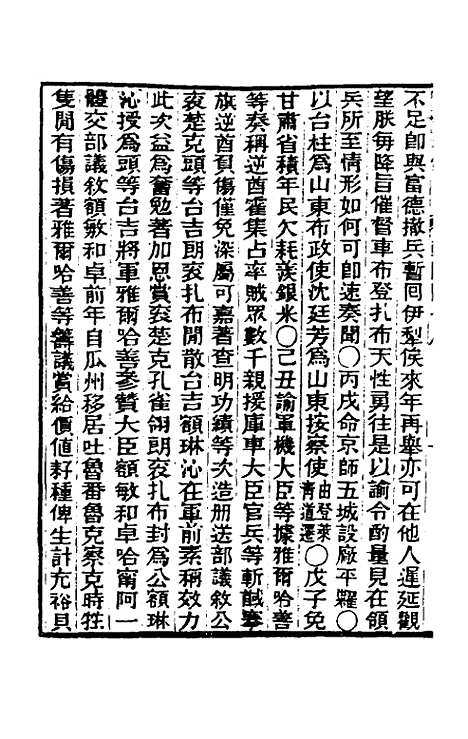 不足卽與富德撤兵暫囘伊犁俟來年再舉亦可在他人遲延觀
望朕每降旨催督車布登扎布天性勇往是以諭令酌量見在領
兵所至情形如何可卽速奏聞○丙戌命京師五城設廠平糶○
以台柱爲山東布政使沈廷芳爲山東按察使由登萊青道遷○戊子免
甘肅省積年民欠耗羨銀米○己丑諭軍機大臣等據雅爾哈善
等奏稱逆酋霍集占率賊眾數千親援庫車大臣官兵等斬馘搴
旗逆酋負傷僅免深屬可嘉著查明功績等次造册送部議敘公
袞楚克頭等台吉朗袞扎布閒散台吉額琳沁在軍前素稱效力
此次益爲奮勉著加恩賞袞楚克孔雀翎朗袞扎布封爲公額琳
沁授爲頭等台吉將軍雅爾哈善參贊大臣額敏和卓哈甯阿一
體交部議敘額敏和卓前年自瓜州移居吐魯番魯克察克時牲
隻閒有傷損著雅爾哈善等籌議賞給價値耔種俾生計充裕貝